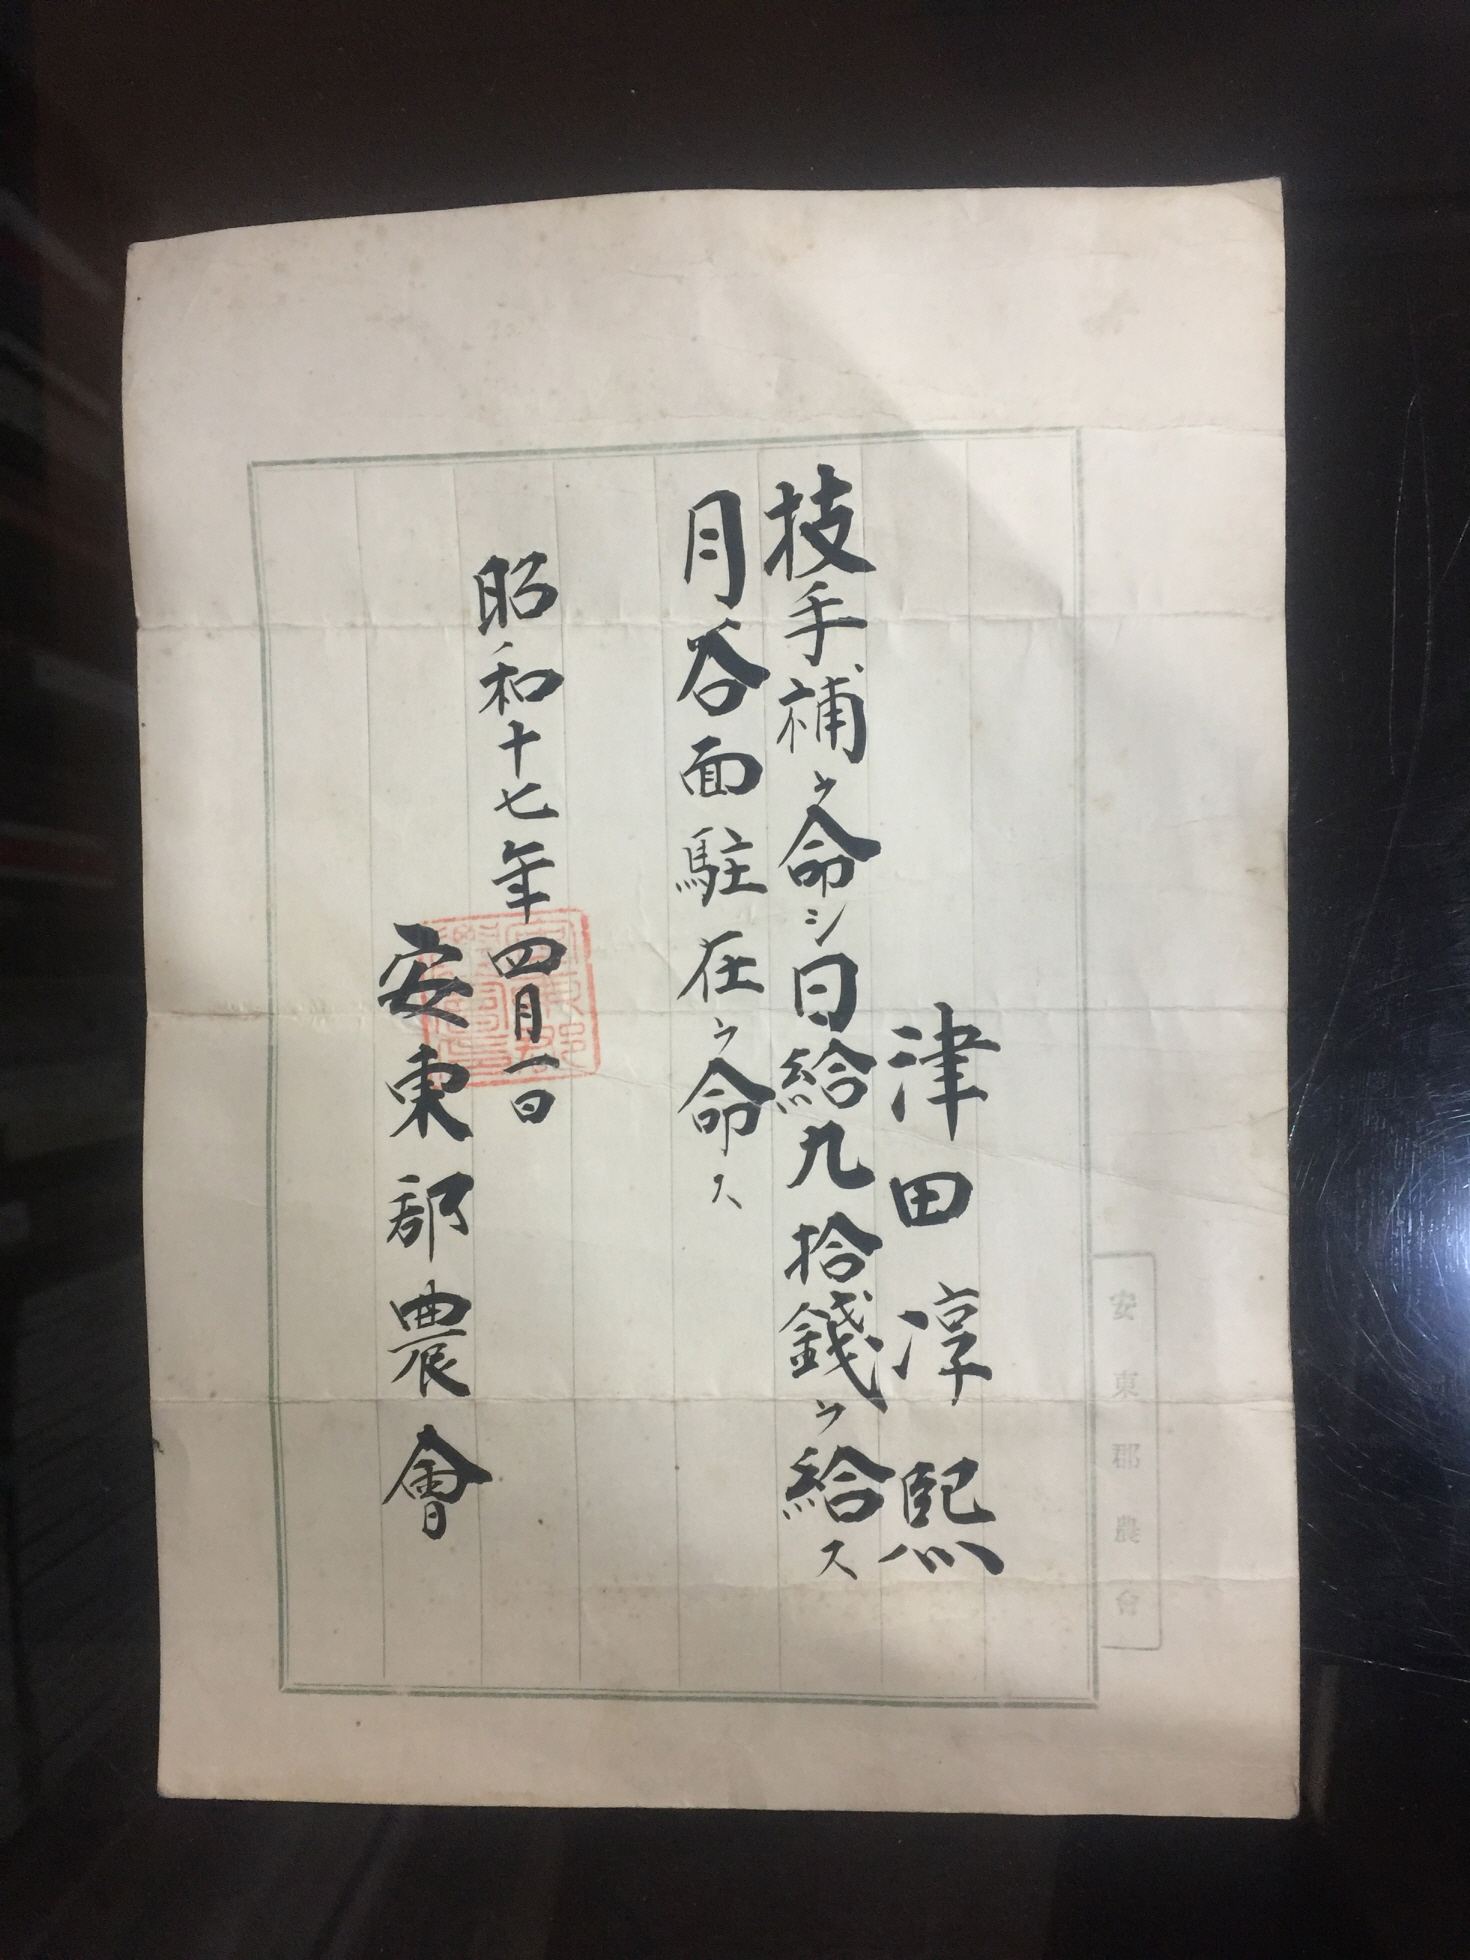 津田淳熙
技手補ヲ命シ日給九拾錢ヲ給ス
月谷面駐在ヲ命ス
昭和十七年四月一日
安東郡農會
安東郡農會